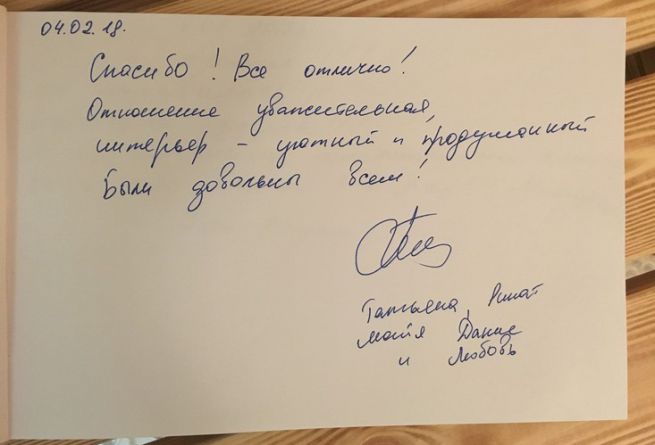 04.02.18.
Спасибо! Все отлично!
Отношение уважительная,
интерьер - уютный и продуманный
Были довольны всем!
Татьяна, Ринат
Майя Данис
и Любовь